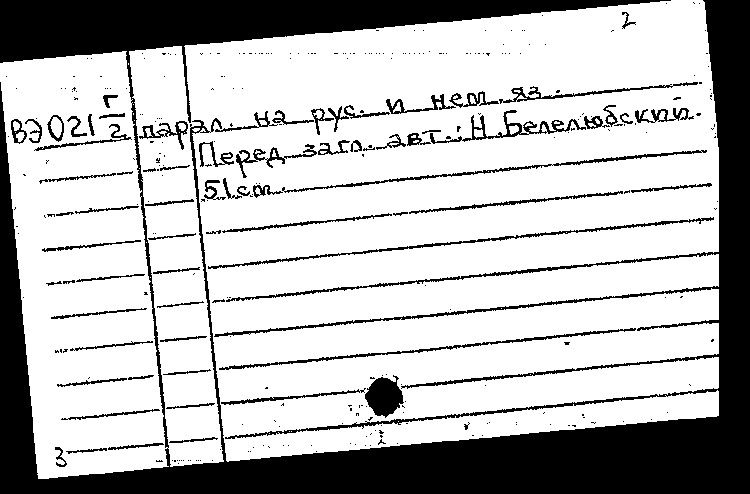 2
ВЭ021 Г/2 парал. на рус. и нем. яз.
Перед загл. авт.: Н. Белелюбский.
51 см.
3